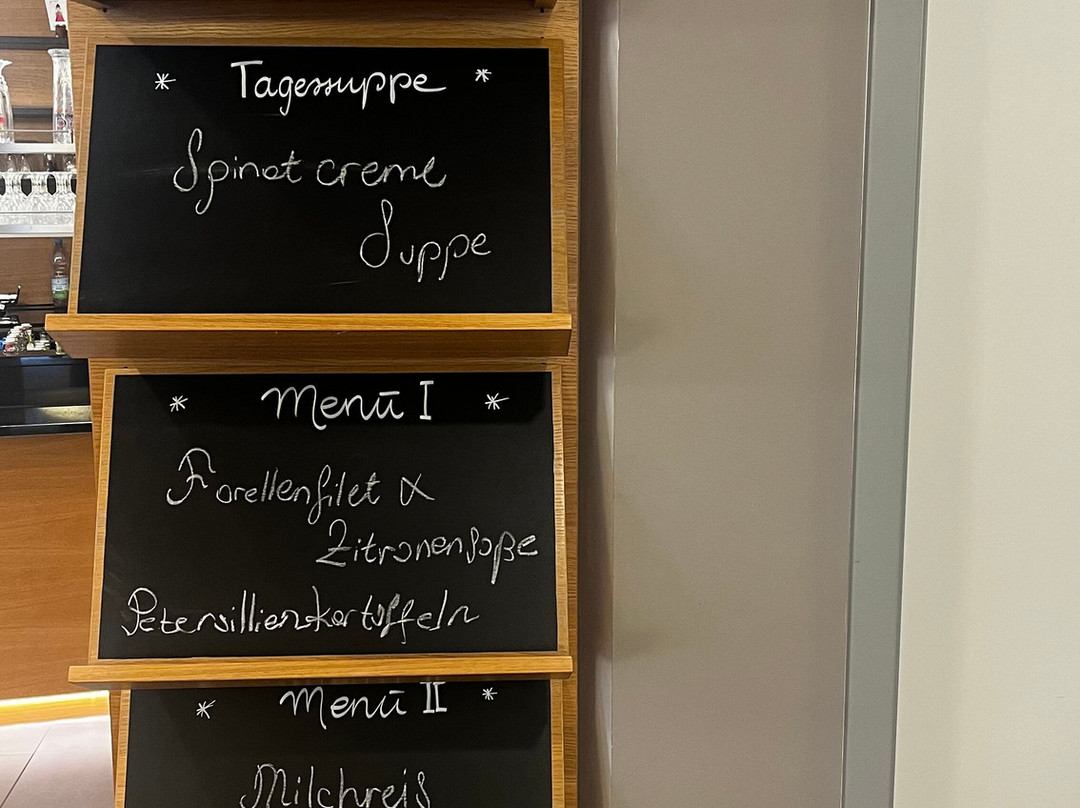 * Tagessuppe *
Spinat creme
Suppe
* Menü I *
Forellenfilet &
Zitronensoße
Petersillienkartoffeln
* Menü II *
Milchreis